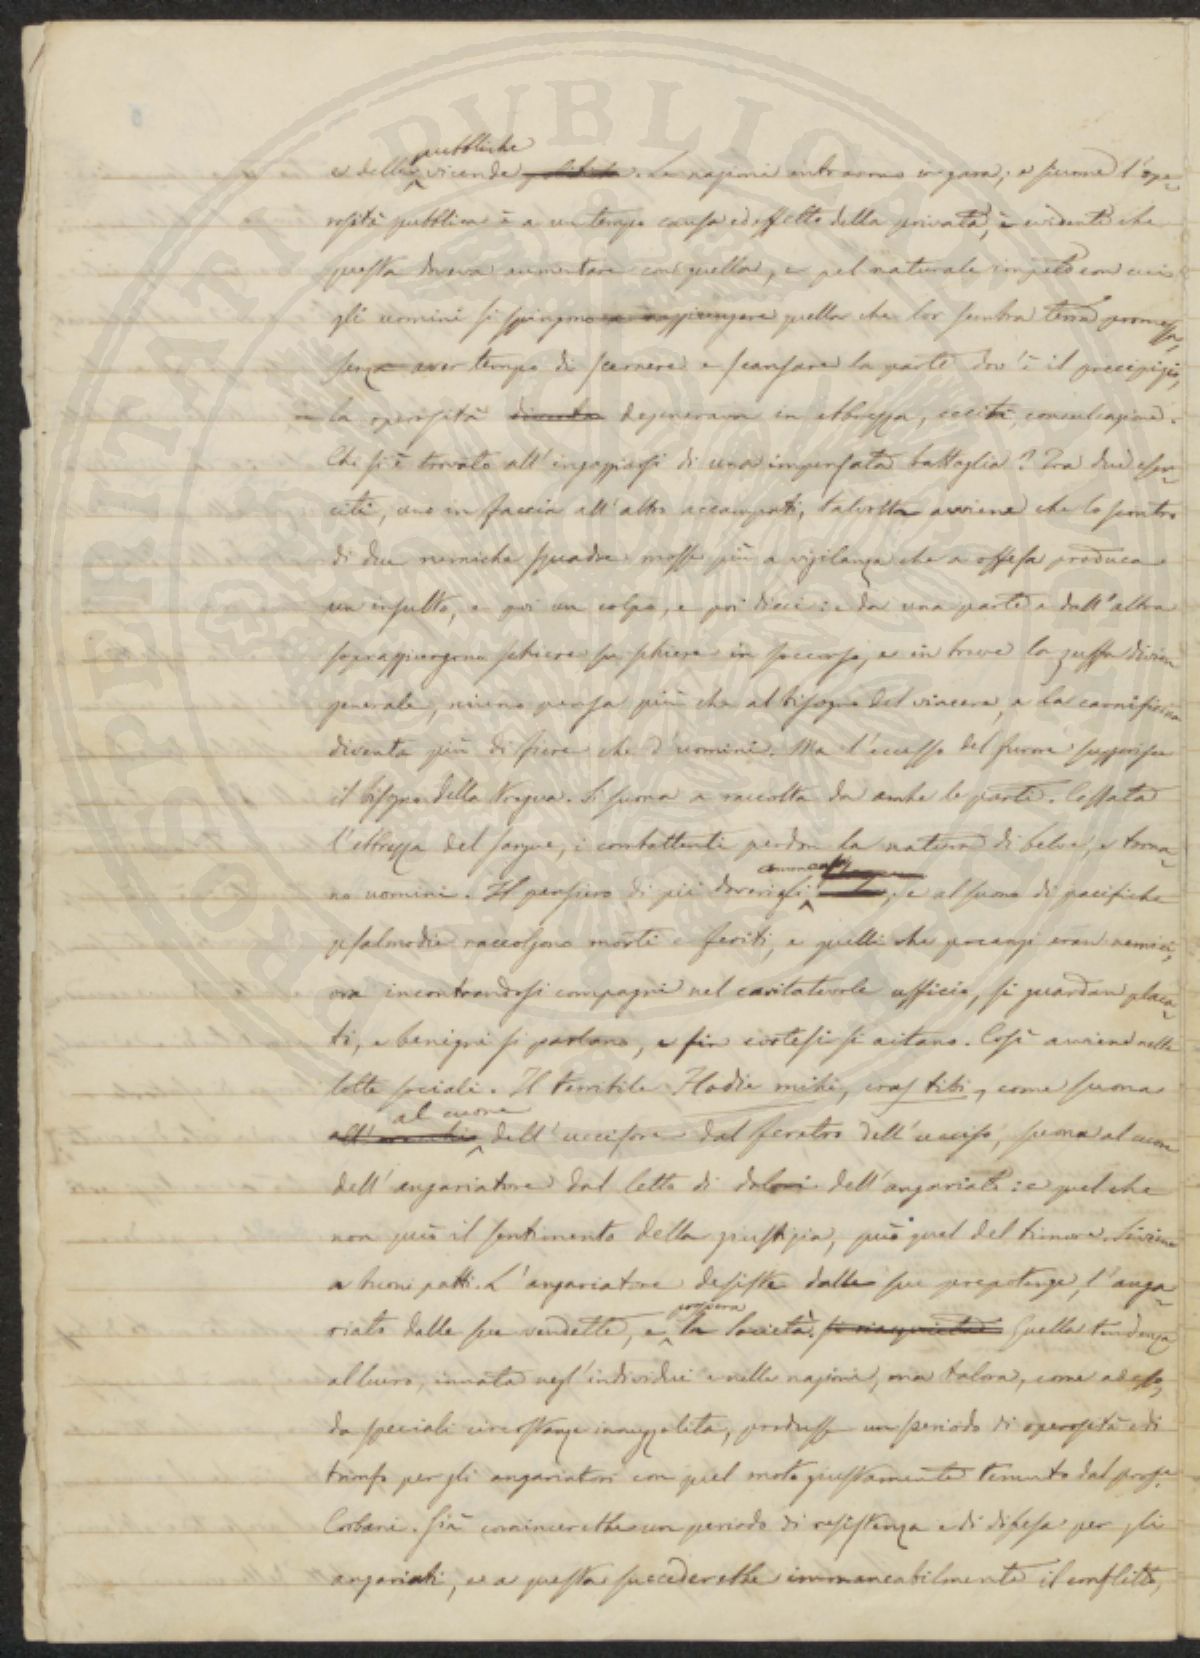 e delle pubbliche vicende. Le nazioni entrarono in gara; e siccome l'ope-
rosità pubblica è a un tempo causa ed effetto della privata, è evidente che
questa doveva aumentare con quella, e pel naturale impeto con cui
gli uomini si spingono a raggiungere quella che lor sembra terra promessa,
senza aver tempo di scernere e scansare la parte dov'è il precipizio,
la operosità degenerava in ebbrezza, cecità, convulsione.
Chi si è trovato all'ingaggiarsi di una impensata battaglia? Tra due eser-
citi, uno in faccia all'altro accampati, talvolta avviene che lo scontro
di due nemiche squadre mosse più a vigilanza che a offesa produca
un insulto, e poi un colpo, e poi dieci: e da una parte e dall'altra
sopraggiungono schiere su schiere in soccorso, e in breve la zuffa divien
generale, niuno pensa più che al bisogno del vincere, e la carnificina
diventa più di fiere che d'uomini. Ma l'eccesso del furore suggerisce
il bisogno della tregua. Si suona a raccolta da ambe le parti. Cessata
l'ebbrezza del sangue, i combattenti perdon la natura di belve, e torna-
no uomini. Il pensiero di più doveri; e al suono di pacifiche
psalmodie raccolgono morti e feriti, e quelli che pocanzi eran nemici,
ora incontrandosi compagni nel caritatevole ufficio, si guardan placa-
ti, e benigni si parlano, e fin cortesi si aitano. Così avviene nelle
lotte sociali. Il terribile Hodie mihi, cras tibi, come suona
al cuore dell'uccisore dal feretro dell'ucciso, suona al cuore
dell'angariatore dal letto di dolori dell'angariato: e quel che
non può il sentimento della giustizia, può quel del timore. Si viene
a buoni patti. L'angariatore desiste dalle sue prepotenze, l'anga-
riato dalle sue vendette, e prospera la Società. Quella tendenza
al lucro, innata negl'individui e nelle nazioni, ora talora, come adesso,
da speciali circostanze, produsse un periodo di operosità e di
trionfo per gli angariatori con quel moto giustamente temuto dal profe.
Corbani. Già comincerebbe un periodo di resistenza e di difesa per gli
angariati, e a questa succederebbe immancabilmente il conflitto,